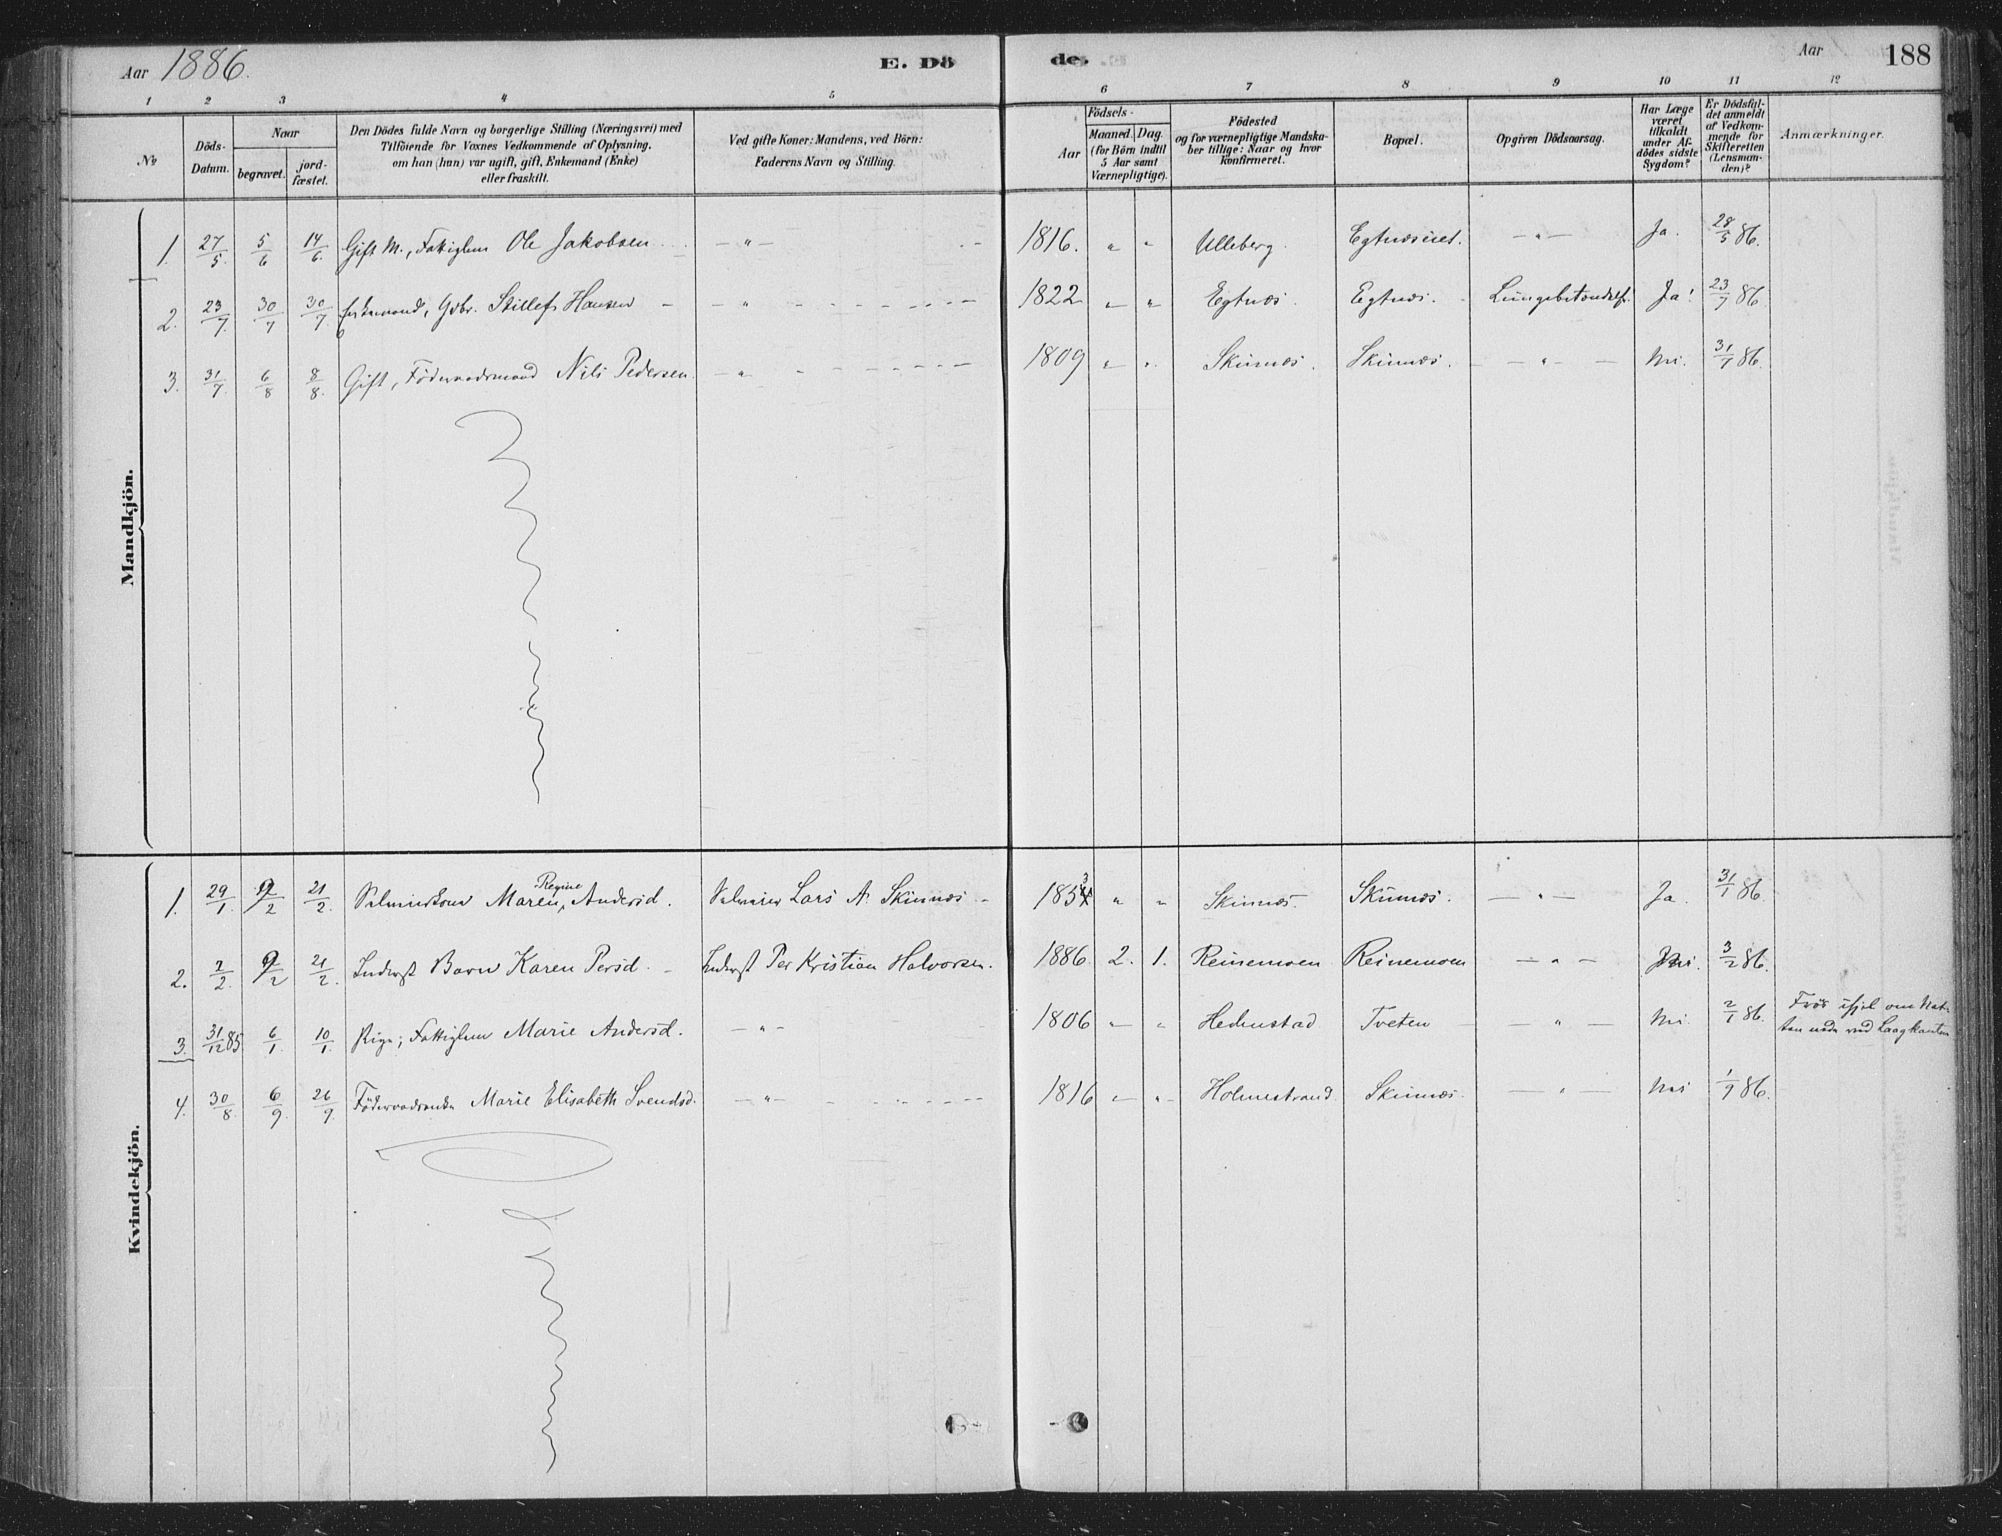 Aar 1886.
E. Dö
de.
Aar
188
1 2 3 4 5 6 7 8 9 10 11 12
No
Döds-
Datum.
Naar
begravet.
jord-
fæstet.
Den Dödes fulde Navn og borgerlige Stilling (Næringsvei) med
Tilföiende for Voxnes Vedkommende af Oplysning,
om han (hun) var ugift, gift, Enkemand (Enke)
eller fraskilt.
Ved gifte Koner: Mandens, ved Börn:
Faderens Navn og Stilling.
Födsels-
Aar
Maaned. Dag.
(for Börn indtil
5 Aar samt
Værnepligtige).
Födested
og for værnepligtige Mandska-
ber tillige: Naar og hvor
Konfirmeret.
Bopæl.
Opgiven Dödsaarsag.
Har Læge
været
tilkaldt
under Af-
dödes sidste
Sygdom?
Er Dödsfal-
det anmeldt
af Vedkom-
mende for
Skifteretten
(Lensman-
den)?
Anmærkninger.
Mandkjön.
1. 27/5. 5/6 14/6. Gift M., Fattiglem Ole Jakobsen — " — 1816. " " Ulleberg. — " — Ja. 28/5 86.
2. 23/7. 30/7 30/7. Gbr. Stillef Hansen — " — 1822 " " Egtnæs. Egtnæs. Lungebetændelse. Ja. 23/7 86.
3. 31/7. 6/8 8/8. Gift, Föderaadsmand Nils Pedersen. — " — 1809 " " Skinnæs. Skinnæs. — " — Nei. 31/7 86.
Kvindekjön.
1. 29/1. 9/2 21/2. Maren Regine Andersd. Lars A. Skinnæs 1853 " " Skinnæs. Skinnæs. — " — Ja. 31/1 86.
2. 2/2. 9/2 21/2. Inderst Barn Karen Persd. Inderst Per Kristian Halvorsen. 1886. 2. 1. Reinemoen Reinemoen — " — Nei. 3/2 86.
3. 31/12 85. 6/1. 10/1. Pige, Fattiglem Marie Andersd. — " — 1806 " " Hedenstad Tveten — " — Nei. 2/1 86. Frös ihjel om Nat-
ten nede ved Laagkanten
4. 30/8. 6/9. 26/9. Föderaadsenke Marie Elisabeth Svendsd. — " — 1816 " " Holmestrand. Skinnæs. — " — Nei 1/9 86.